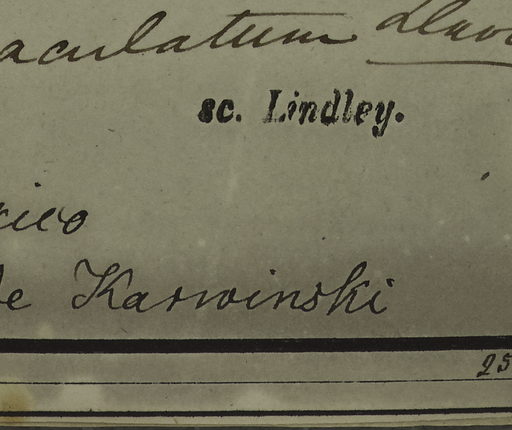 aculatum
sc. Lindley.
xico
de Karwinski
25